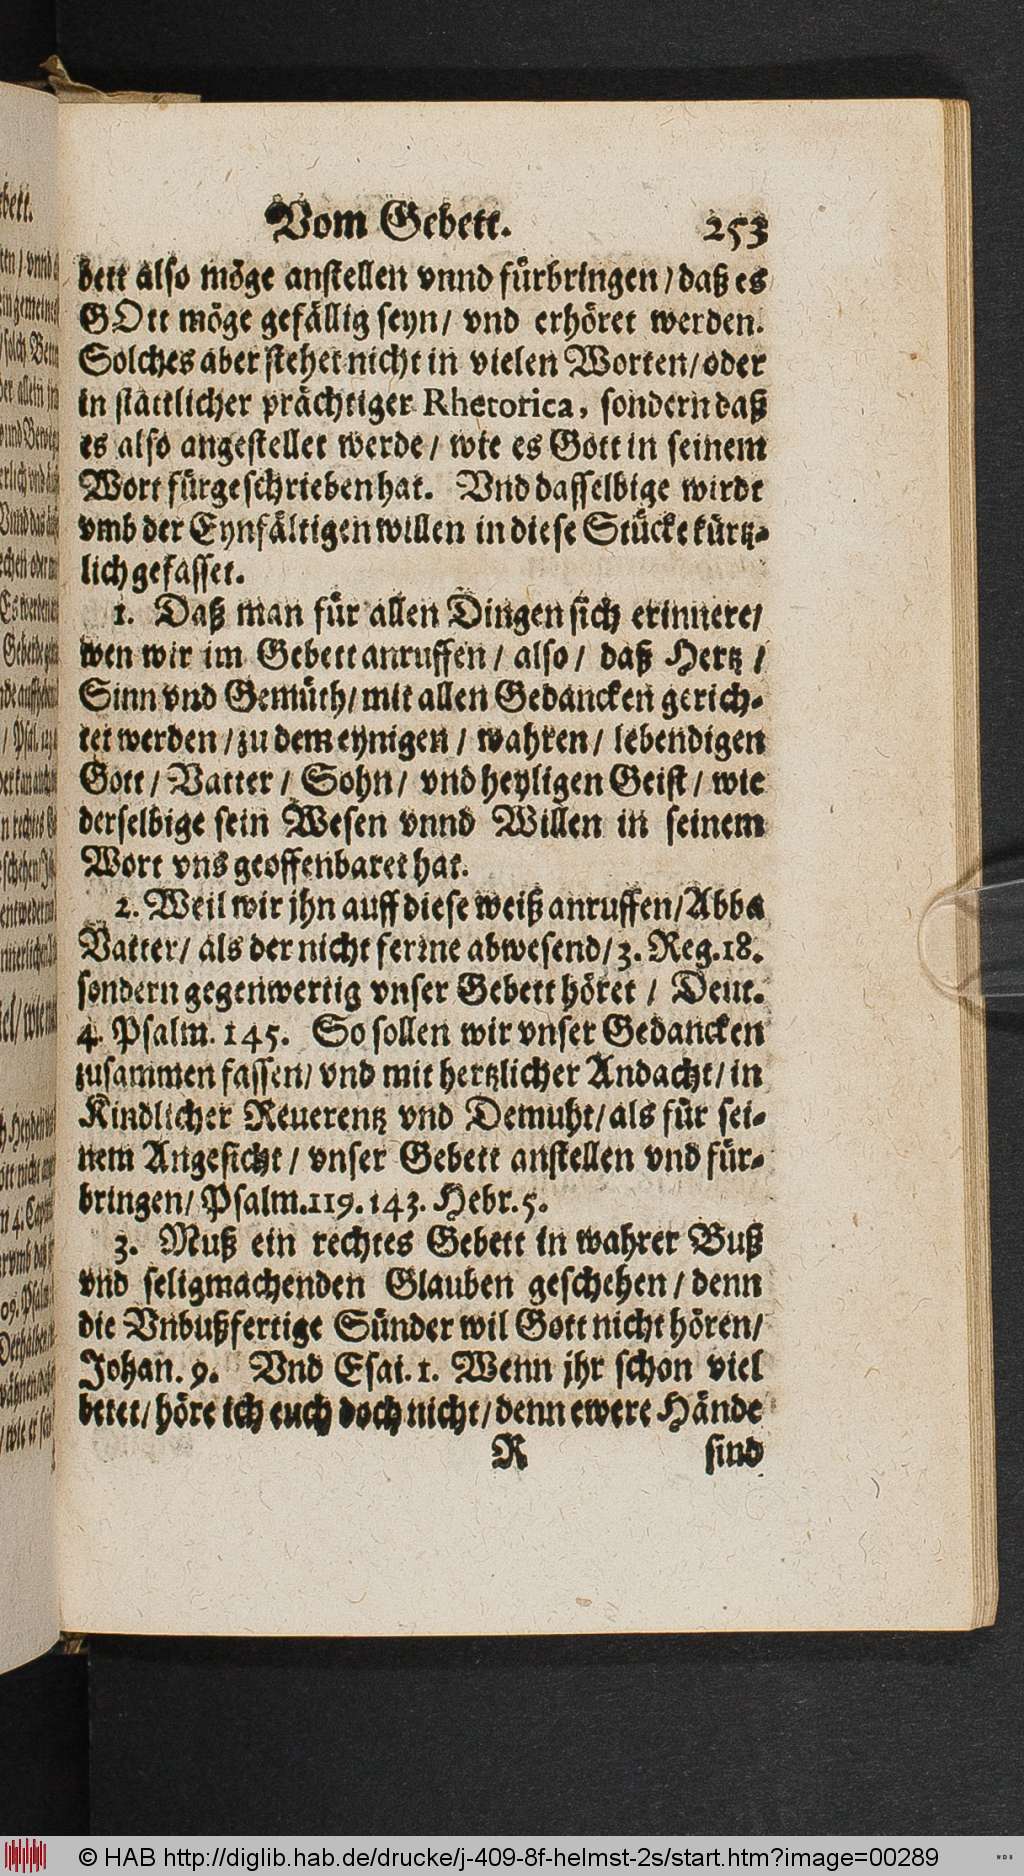 Vom Gebett. 253
bett also möge anstellen vnnd fürbringen / daß es
GOtt möge gefällig seyn / vnd erhöret werden.
Solches aber stehet nicht in vielen Worten / oder
in stattlicher prächtiger Rhetorica, sondern daß
es also angestellet werde / wie es Gott in seinem
Wort fürgeschrieben hat. Vnd dasselbige wirdt
vmb der Eynfältigen willen in diese Stücke kürtz-
lich gefasset.
1. Daß man für allen Dingen sich erinnere /
wen wir im Gebett anruffen / also / daß Hertz /
Sinn vnd Gemüth / mit allen Gedancken gerich-
tet werden / zu dem eynigen / wahren / lebendigen
Gott / Vatter / Sohn / vnd heyligen Geist / wie
derselbige sein Wesen vnnd Willen in seinem
Wort vns geoffenbaret hat.
2. Weil wir jhn auff diese weiß anruffen / Abba
Vatter / als der nicht ferrne abwesend / 3. Reg. 18.
sondern gegenwertig vnser Gebett höret / Deut.
4. Psalm. 145. So sollen wir vnser Gedancken
zusammen fassen / vnd mit hertzlicher Andacht / in
Kindlicher Reuerentz vnd Demuht / als für sei-
nem Angesicht / vnser Gebett anstellen vnd für-
bringen / Psalm. 119. 143. Hebr. 5.
3. Muß ein rechtes Gebett in wahrer Buß
vnd seligmachenden Glauben geschehen / denn
die Vnbußfertige Sünder wil Gott nicht hören /
Johan. 9. Vnd Esai. 1. Wenn jhr schon viel
betet / höre ich euch doch nicht / denn ewere Hände
R sind
© HAB http://diglib.hab.de/drucke/j-409-8f-helmst-2s/start.htm?image=00289